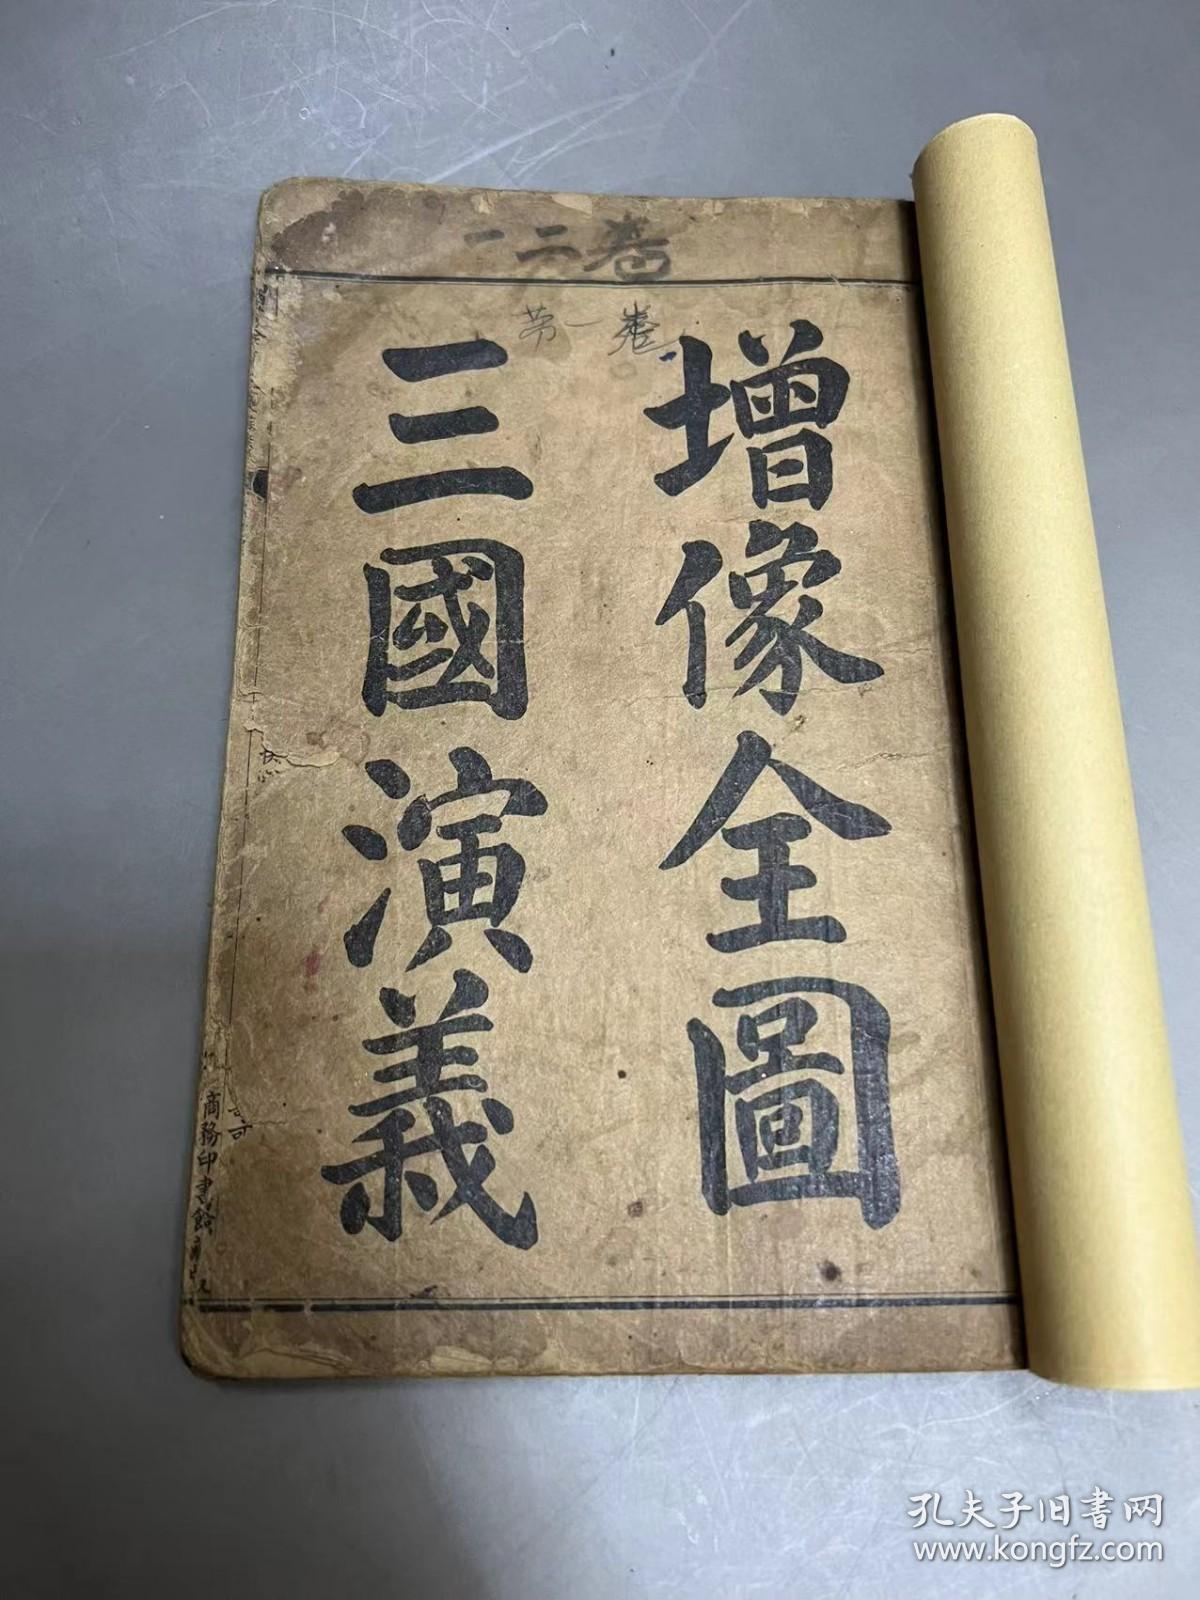 一二卷
第一卷
增像全圖
三國演義
商務印書館
孔夫子旧书网
www.kongfz.com